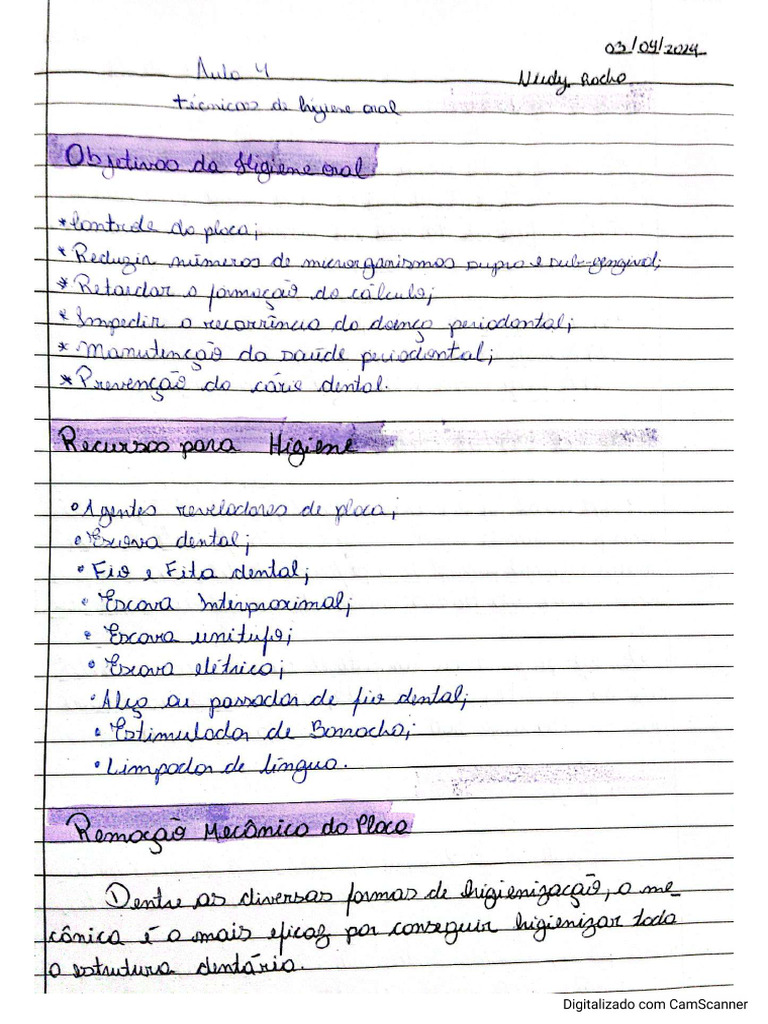 03/04/2024
Aula 4
Neidy Rocha
técnicas de higiene oral
Objetivos da Higiene oral
*Controle da placa;
*Reduzir números de microrganismos supra e sub-gengival;
*Retardar a formação do cálculo;
*Impedir a recorrência da doença periodontal;
*Manutenção da saúde periodontal;
*Prevenção da cárie dental.
Recursos para Higiene
•Agentes reveladores de placa;
•Escova dental;
•Fio e Fita dental;
•Escova Interproximal;
•Escova unitufo;
•Escova elétrica;
•Alça ou passador de fio dental;
•Estimulador de Borracha;
•Limpador de língua.
Remoção Mecânica da Placa
Dentre as diversas formas de higienização, a me-
cânica é a mais eficaz por conseguir higienizar toda
a estrutura dentária.
Digitalizado com CamScanner